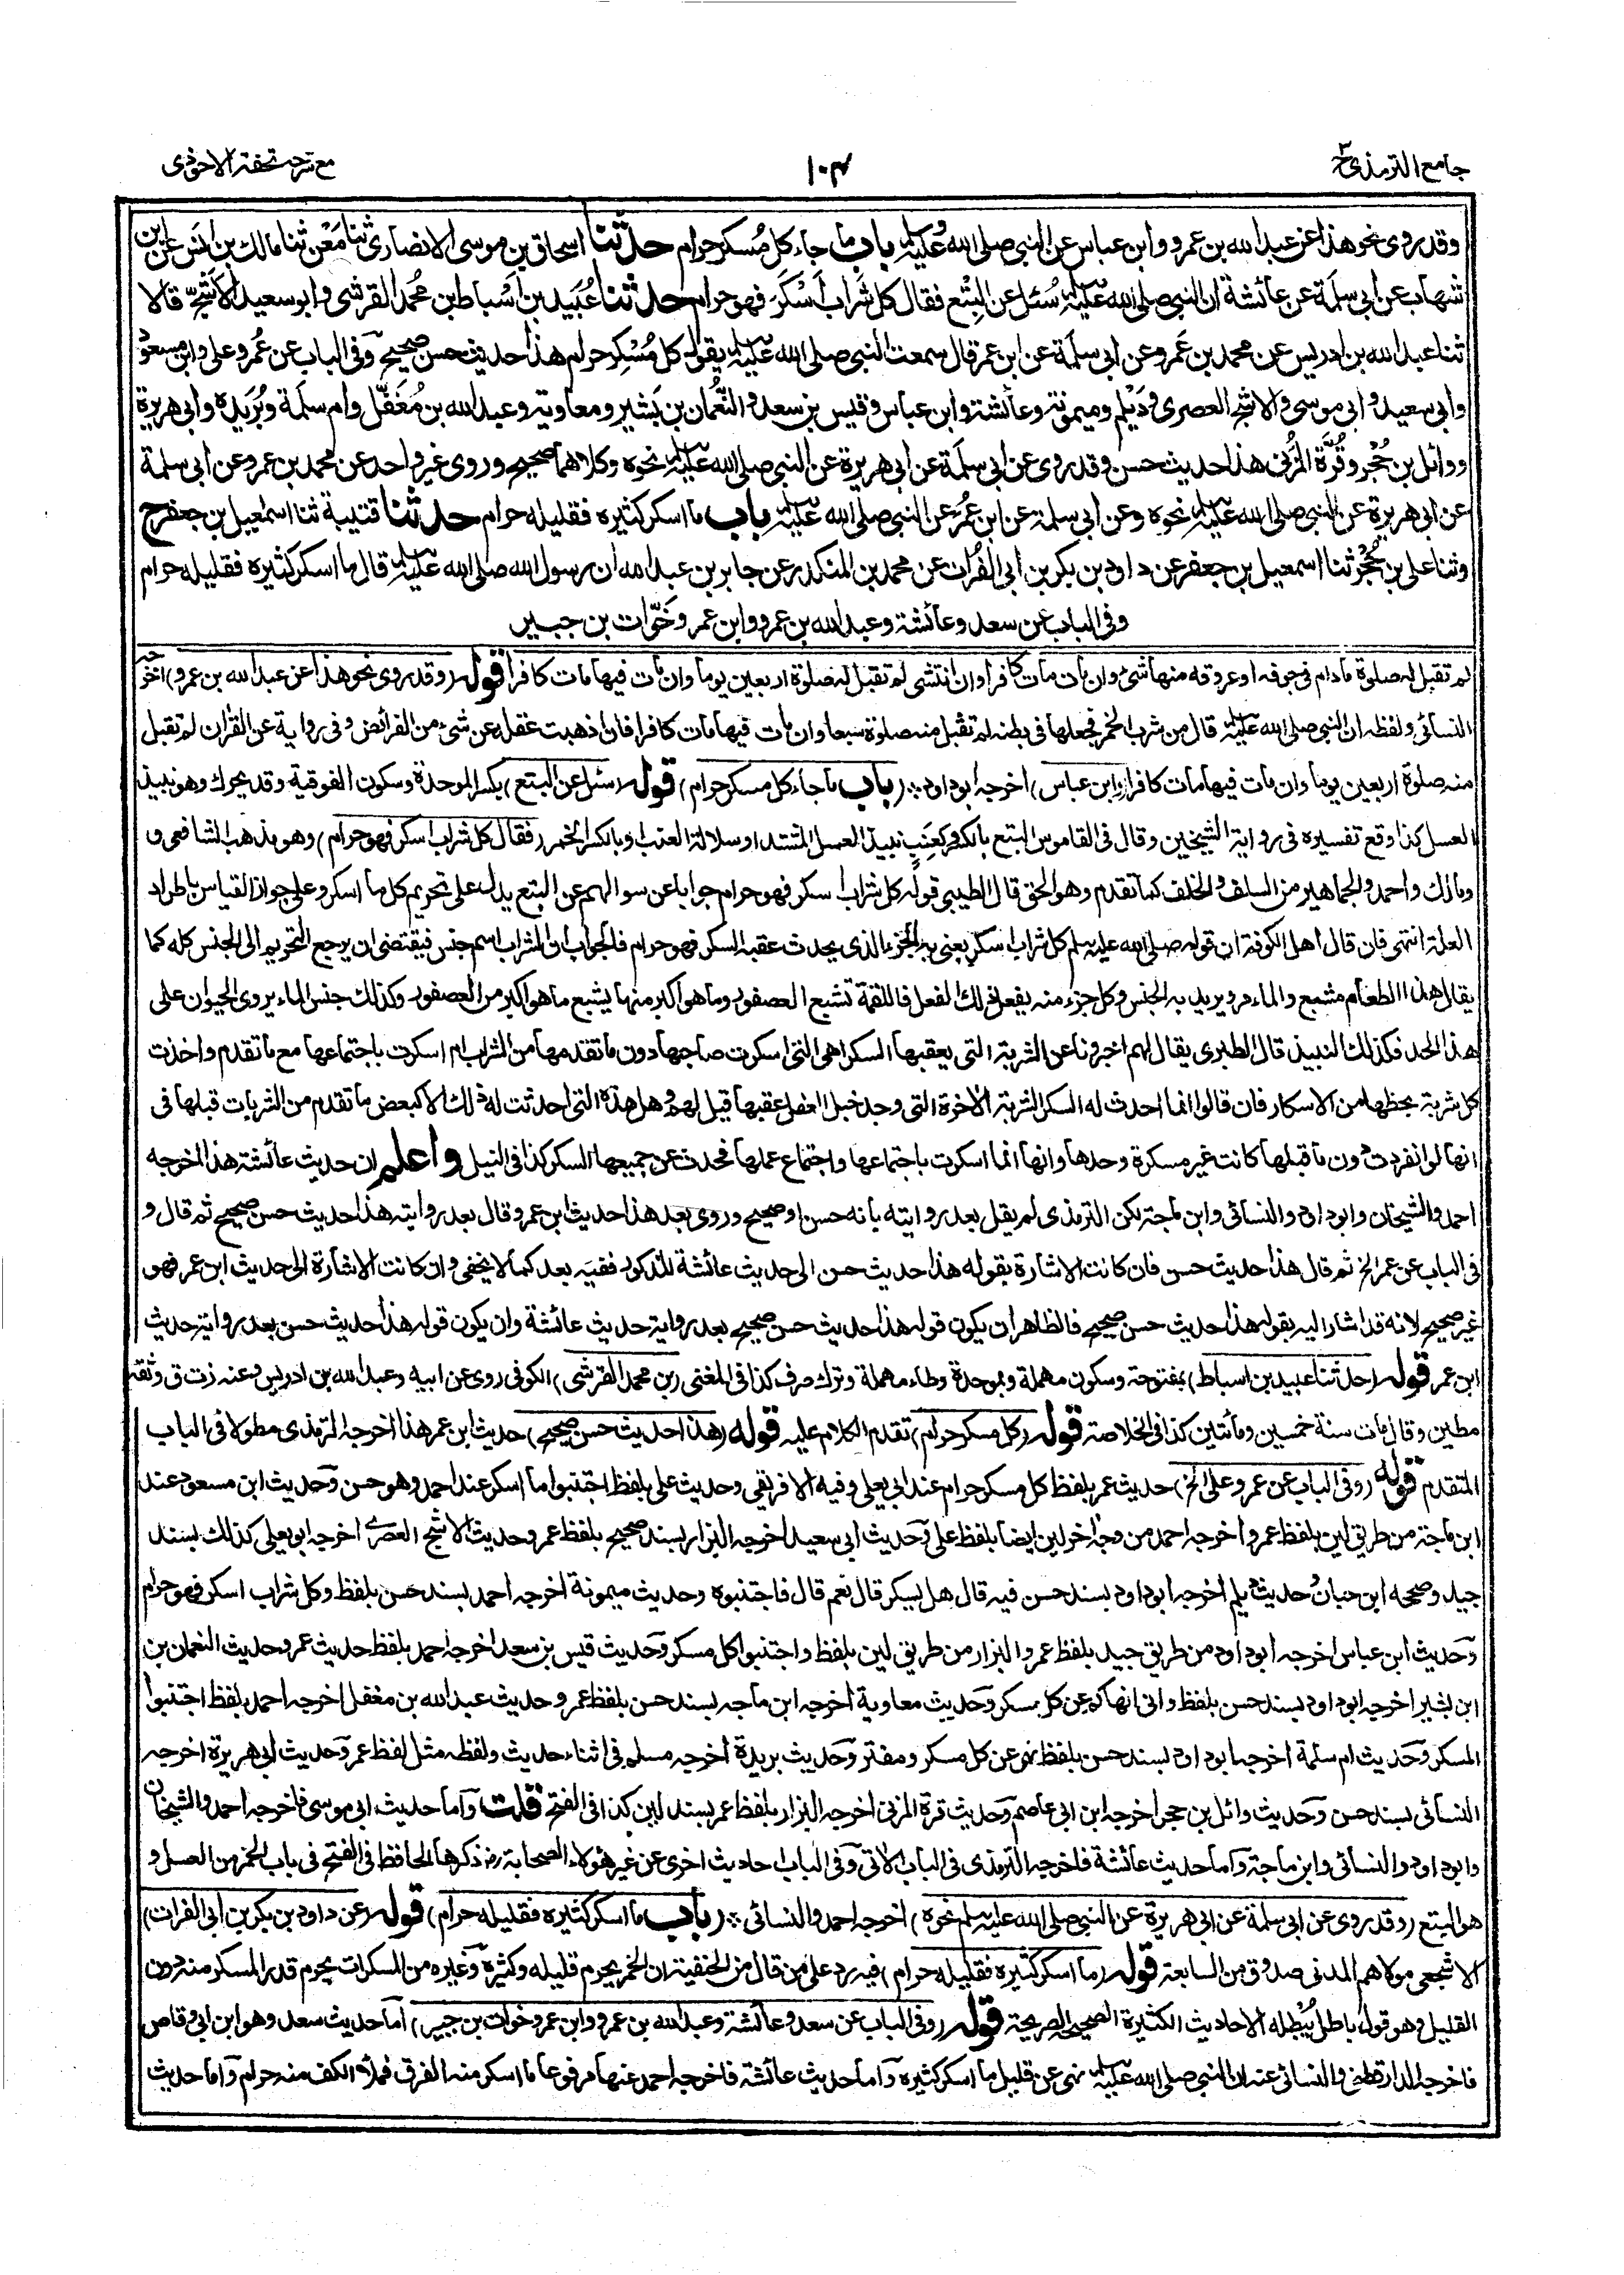 جامع الترمذي ج٢
١٠٤
مع شرحہ تحفة الاحوذی
وقد روى نحو هذا عن عبد الله بن عمرو وابن عباس عن النبي صلى الله عليه وسلم باب ما جاء كل مُسكر حرام حدثنا اسحاق بن موسى الانصاري ثنا مَعْن ثنا مالك بن انس عن ابن
شهاب عن ابي سلمة عن عائشة ان النبي صلى الله عليه وسلم سُئل عن البِتْع فقال كل شراب أسْكَرَ فهو حرام حدثنا عُبَيد بن أسْباط بن محمد القرشي وابو سعيد الأشَجّ قالا
ثنا عبد الله بن ادريس عن محمد بن عَمرو عن ابي سلمة عن ابن عمر قال سمعت النبي صلى الله عليه وسلم يقول كل مُسْكِر حرام هذا حديث حسن صحيح وفى الباب عن عُمر وعلى وابن مسعود
وابي سعيد وابي موسى والاشج العصرى ودَيْلم وميمونة وعائشة وابن عباس وقيس بن سعد والنُّعمان بن بَشير ومعاوية وعبد الله بن مُغَفَّل وام سلمة وبُرَيدة وابي هريرة
ووائل بن حُجْر وقُرّة المُزَني هذا حديث حسن وقد روى عن ابي سلمة عن ابي هريرة عن النبي صلى الله عليه وسلم نحوه وكلاهما صحيح وروى غير واحد عن محمد بن عمرو عن ابي سلمة
عن ابي هريرة عن النبي صلى الله عليه وسلم نحوه وعن ابي سلمة عن ابن عُمر عن النبي صلى الله عليه وسلم باب ما اسكر كثيره فقليله حرام حدثنا قتيبة ثنا اسمعيل بن جعفر ح
وثنا على بن حُجْر ثنا اسمعيل بن جعفر عن داود بن بكر بن ابي الفُرات عن محمد بن المنكدر عن جابر بن عبد الله ان رسول الله صلى الله عليه وسلم قال ما اسكر كثيره فقليله حرام
وفى الباب عن سعد وعائشة وعبد الله بن عمرو وابن عمر وخَوّات بن جبير
لم تقبل له صلوة مادام فى جوفه او عروقه منها شئ وان مات مات كافرا وان انتشى لم تقبل له صلوة اربعين يوما وان مات فيها مات كافرا قوله (وقد روى نحو هذا عن عبد الله بن عمرو) اخرجه
النسائى ولفظه ان النبي صلى الله عليه وسلم قال من شرب الخمر فجعلها فى بطنه لم تقبل منه صلوة سبعا وان مات فيها مات كافرا فان ذهبت عقله عن شئ من الفرائض وفى رواية عن القرآن لم تقبل
منه صلوة اربعين يوما وان مات فيها مات كافرا (وابن عباس) اخرجه ابو داود ؞ (باب ما جاء كل مسكر حرام) قوله (سئل عن البتع) بكسر الموحدة وسكون الفوقية وقد يحرك وهو نبيذ
العسل كذا وقع تفسيره فى رواية الشيخين وقال فى القاموس البتع بالكسر وكعِنَب نبيذ العسل المشتد او سلالة العنب وبالكسر الخمر (فقال كل شراب اسكر فهو حرام) وهو مذهب الشافعى و
ومالك واحمد والجماهير من السلف والخلف كما تقدم وهو الحق قال الطيبى قوله كل شراب اسكر فهو حرام جوابا عن سوالهم عن البتع يدل على تحريم كل ما اسكر وعلى جواز القياس باطراد
العلة انتهى فان قال اهل الكوفة ان قوله صلى الله عليه وسلم كل شراب اسكر يعنى به الجزء الذى يحدث عقبه السكر فهو حرام فالجواب ان الشراب اسم جنس فيقتضى ان يرجع التحريم الى الجنس كله كما
يقال هذا الطعام مشبع والماء مرو يريد به الجنس وكل جزء منه يفعل ذلك الفعل فاللقمة تشبع العصفور وما هو اكبر منها يشبع ما هو اكبر من العصفور وكذلك جنس الماء يروى الحيوان على
هذا الحد فكذلك النبيذ قال الطبرى يقال لهم اخبرونا عن الشربة التى يعقبها السكر اهى التى اسكرت صاحبها دون ما تقدمها من الشراب ام اسكرت باجتماعها مع ما تقدم واخذت
كل شربة بحظها من الاسكار فان قالوا انما احدث له السكر الشربة الآخرة التى وجد خبل العقل عقبها قيل لهم وهل هذه التى احدثت له ذلك الا كبعض ما تقدم من الشربات قبلها فى
انها لو انفردت دون ما قبلها كانت غير مسكرة وحدها وانها انما اسكرت باجتماعها واجتماع عملها فحدث عن جميعها السكر كذا فى النيل واعلم ان حديث عائشة هذا اخرجه
احمد والشيخان وابو داود والنسائى وابن ماجة لكن الترمذى لم يقل بعد روايته بانه حسن او صحيح وروى بعد هذا حديث ابن عمر وقال بعد روايته هذا حديث حسن صحيح ثم قال و
فى الباب عن عمر الخ ثم قال هذا حديث حسن فان كانت الاشارة بقوله هذا حديث حسن الى حديث عائشة المذكور ففيه بعد كما لا يخفى وان كانت الاشارة الى حديث ابن عمر فهو
غير صحيح لانه قد اشار اليه بقوله هذا حديث حسن صحيح فالظاهر ان يكون قوله هذا حديث حسن صحيح بعد رواية حديث عائشة وان يكون قوله هذا حديث حسن بعد رواية حديث
ابن عمر قوله (حدثنا عبيد بن اسباط) بمفتوحة وسكون مهملة وبموحدة وطاء مهملة وترك صرف كذا فى المغنى (بن محمد القرشى) الكوفى روى عن ابيه وعبد الله بن ادريس وعنه ذ ت ق وثقه
مطين وقال مات سنة خمسين ومأتين كذا فى الخلاصة قوله (كل مسكر حرام) تقدم الكلام عليه قوله (هذا حديث حسن صحيح) حديث ابن عمر هذا اخرجه الترمذى مطولا فى الباب
المتقدم قوله (وفى الباب عن عمر وعلى الخ) حديث عمر بلفظ كل مسكر حرام عند ابي يعلى وفيه الافريقى وحديث على بلفظ اجتنبوا ما اسكر عند احمد وهو حسن وحديث ابن مسعود عند
ابن ماجة من طريق لين بلفظ عمر واخرجه احمد من وجه آخر لين ايضا بلفظ على وحديث ابي سعيد اخرجه البزار بسند صحيح بلفظ عمر وحديث الاشج العصرى اخرجه ابو يعلى كذلك بسند
جيد وصححه ابن حبان وحديث ديلم اخرجه ابو داود بسند حسن فيه قال هل يسكر قال نعم قال فاجتنبوه وحديث ميمونة اخرجه احمد بسند حسن بلفظ وكل شراب اسكر فهو حرام
وحديث ابن عباس اخرجه ابو داود من طريق جيد بلفظ عمر والبزار من طريق لين بلفظ واجتنبوا كل مسكر وحديث قيس بن سعد اخرجه احمد بلفظ حديث عمر وحديث النعمان بن
ابن بشير اخرجه ابو داود بسند حسن بلفظ وانى انهاكم عن كل مسكر وحديث معاوية اخرجه ابن ماجه بسند حسن بلفظ عمر وحديث عبد الله بن مغفل اخرجه احمد بلفظ اجتنبوا
المسكر وحديث ام سلمة اخرجه ابو داود بسند حسن بلفظ نهى عن كل مسكر ومفتر وحديث بريدة اخرجه مسلم فى اثناء حديث ولفظه مثل لفظ عمر وحديث ابي هريرة اخرجه
النسائى بسند حسن وحديث وائل بن حجر اخرجه ابن ابي عاصم وحديث قرة المزنى اخرجه البزار بلفظ عمر بسند لين كذا فى الفتح قلت واما حديث ابى موسى فاخرجه احمد والشيخان
وابو داود والنسائى وابن ماجة واما حديث عائشة فاخرجه الترمذى فى الباب الآتى وفى الباب احاديث اخرى عن غير هؤلاء الصحابة رضـ ذكرها الحافظ فى الفتح فى باب الخمر من العسل و
هو البتع (وقد روى عن ابي سلمة عن ابي هريرة عن النبي صلى الله عليه وسلم نحوه) اخرجه احمد والنسائى ؞ (باب ما اسكر كثيره فقليله حرام) قوله (عن داود بن بكر بن ابي الفرات)
الاشجعى مولاهم المدنى صدوق من السابعة قوله (ما اسكر كثيره فقليله حرام) فيه رد على من قال من الحنفية ان الخمر يحرم قليله وكثيره وغيره من المسكرات يحرم قدر المسكر منه دون
القليل وهو قول باطل يُبْطله الاحاديث الكثيرة الصحيحة الصريحة قوله (وفى الباب عن سعد وعائشة وعبد الله بن عمرو وابن عمر وخوات بن جبير) اما حديث سعد وهو ابن ابي وقاص
فاخرجه الدارقطنى والنسائى عنه ان النبي صلى الله عليه وسلم نهى عن قليل ما اسكر كثيره واما حديث عائشة فاخرجه احمد عنها مرفوعا ما اسكر منه الفرق فملأ الكف منه حرام واما حديث